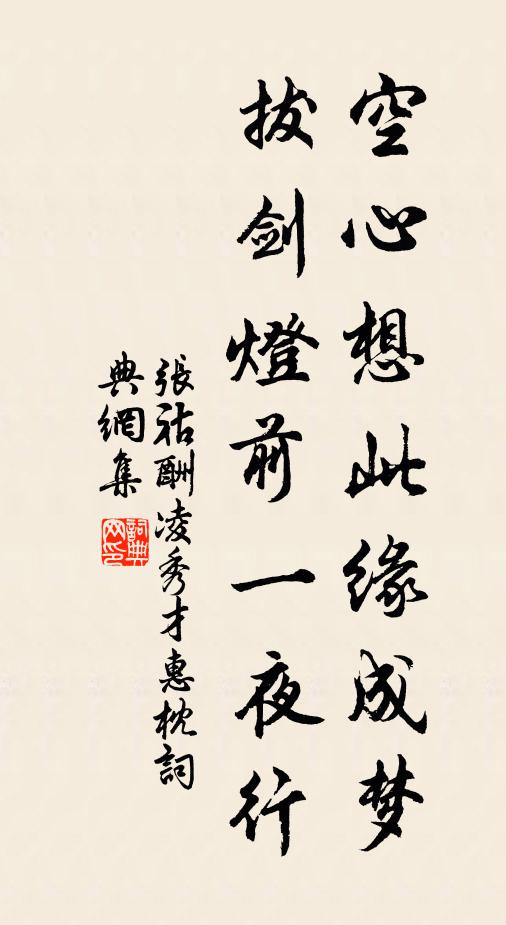 空心想此缘成梦
拔剑燈前一夜行
張祜酬凌秀才惠枕詞
典網集
詞典
网印